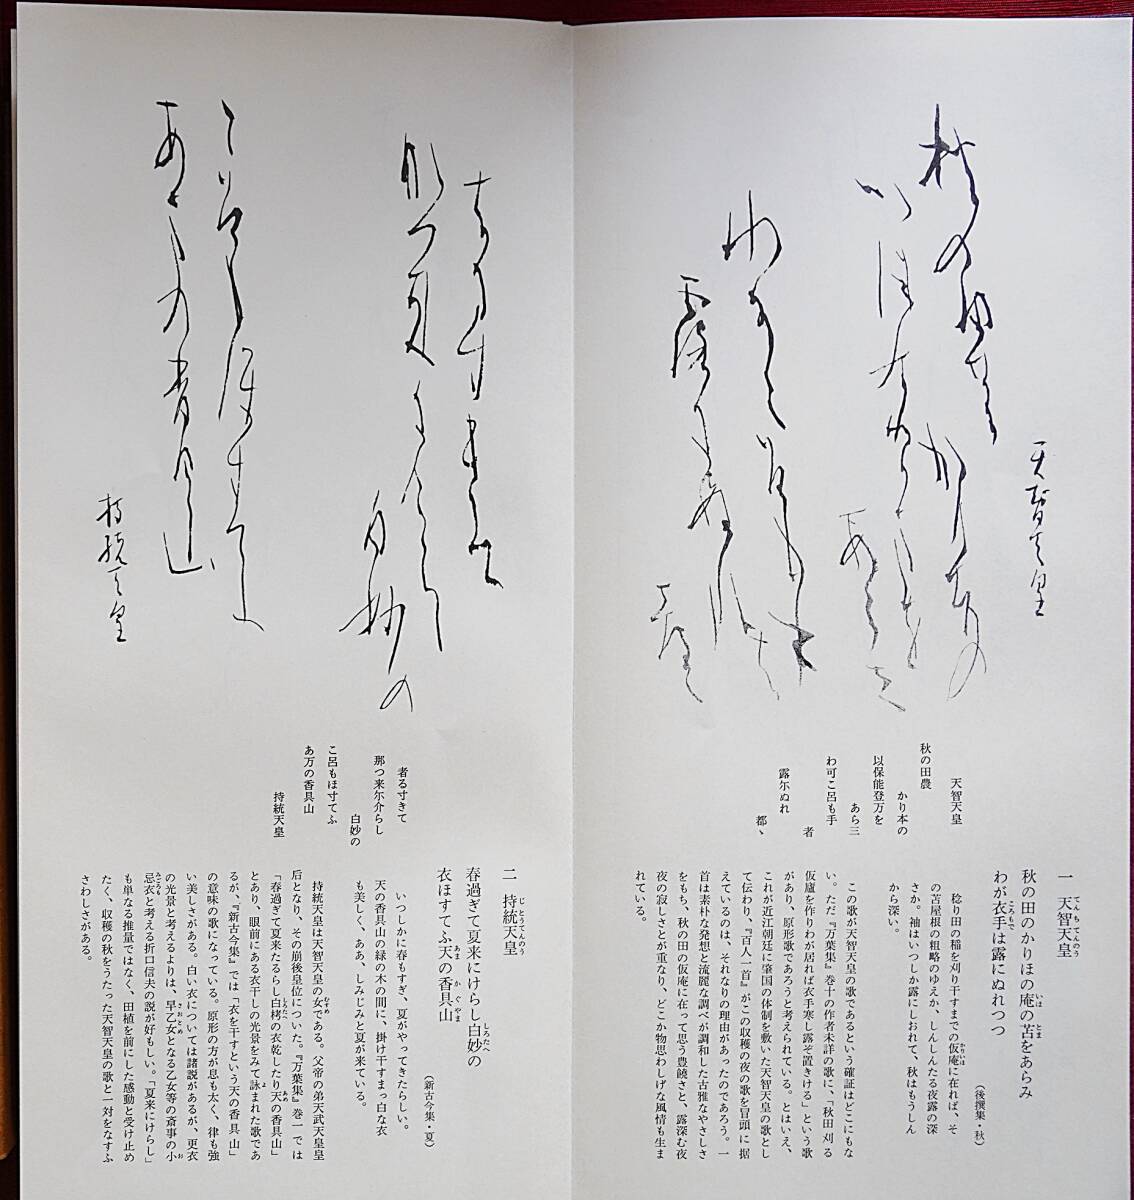 天智天皇
秋の田農
かり本の
以保能登万を
あら三
わ可こ呂も手
者
露尓ぬれ
都ゝ
一　天智天皇
秋の田のかりほの庵の苫をあらみ
わが衣手は露にぬれつつ
（後撰集・秋）
稔り田の稲を刈り干すまでの仮庵に在れば、そ
の苫屋根の粗略のゆえか、しんしんたる夜露の深
さか。袖はいつしか露にしおれて、秋はもうしん
から深い。
この歌が天智天皇の歌であるという確証はどこにもな
い。ただ『万葉集』巻十の作者未詳の歌に、「秋田刈る
仮廬を作りわが居れば衣手寒し露ぞ置きける」という歌
があり、原形歌であろうと考えられている。とはいえ、
これが近江朝廷に肇国の体制を敷いた天智天皇の歌とし
て伝わり、『百人一首』がこの収穫の夜の歌を冒頭に据
えているのは、それなりの理由があったのであろう。一
首は素朴な発想と流麗な調べが調和した古雅なやさしさ
をもち、秋の田の仮庵に在って思う豊饒さと、露深む夜
夜の寂しさとが重なり、どこか物思わしげな風情も生ま
れている。
者る寸きて
那つ来尓介らし
白妙の
こ呂もほ寸てふ
あ万の香具山
持統天皇
二　持統天皇
春過ぎて夏来にけらし白妙の
衣ほすてふ天の香具山
（新古今集・夏）
いつしかに春もすぎ、夏がやってきたらしい。
天の香具山の緑の木の間に、掛け干すまっ白な衣
も美しく、ああ、しみじみと夏が来ている。
持統天皇は天智天皇の女である。父帝の弟天武天皇皇
后となり、その崩後皇位についた。『万葉集』巻一では
「春過ぎて夏来たるらし白栲の衣乾したり天の香具山」
とあり、眼前にある衣干しの光景をみて詠まれた歌であ
るが、『新古今集』では「衣を干すという天の香具山」
の意味の歌になっている。原形の方が息も太く、律も強
い美しさがある。白い衣については諸説があるが、更衣
の光景と考えるよりは、早乙女となる乙女等の斎事の小
忌衣と考える折口信夫の説が好もしい。「夏来にけらし」
も単なる推量ではなく、田植を前にした感動と受け止め
たく、収穫の秋をうたった天智天皇の歌と一対をなすふ
さわしさがある。